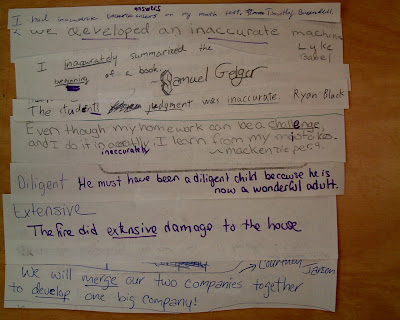 answers
I had inaccurate on my math test. Timothy
we developed an inaccurate machine
Lyke
I Inaccurately summarized the
beginning of a book.
Samuel Geiger
The students judgment was inaccurate. Ryan Black
Even though my homework can be a challenge,
and I do it inaccurately, I learn from my mistakes.
inaccurately
~mackenzie per. 9
Diligent He must have been a diligent child because he is
now a wonderful adult.
Extensive
The fire did extnsive damage to the house
Courtney
Jansen
We will merge our two companies together
to develop one big company!